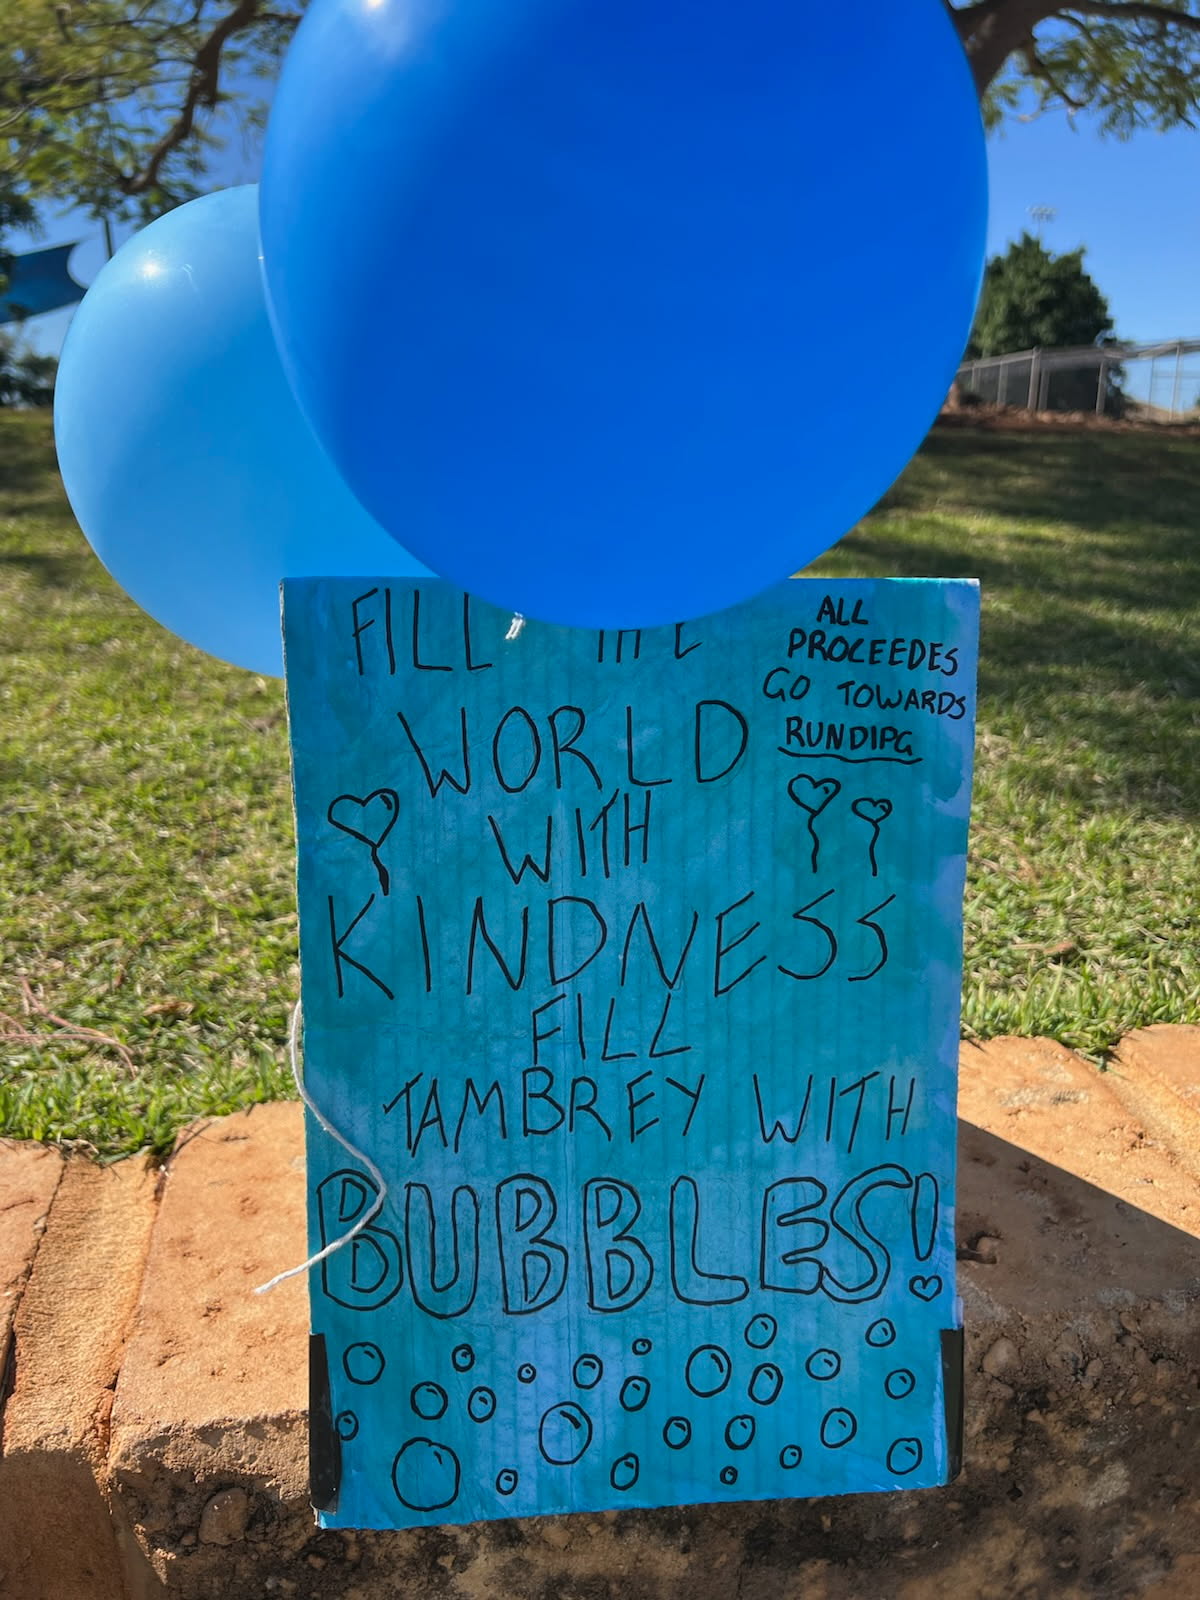 FILL THE
WORLD
WITH
KINDNESS
FILL
TAMBREY WITH
BUBBLES!
ALL
PROCEEDES
GO TOWARDS
RUNDIPG